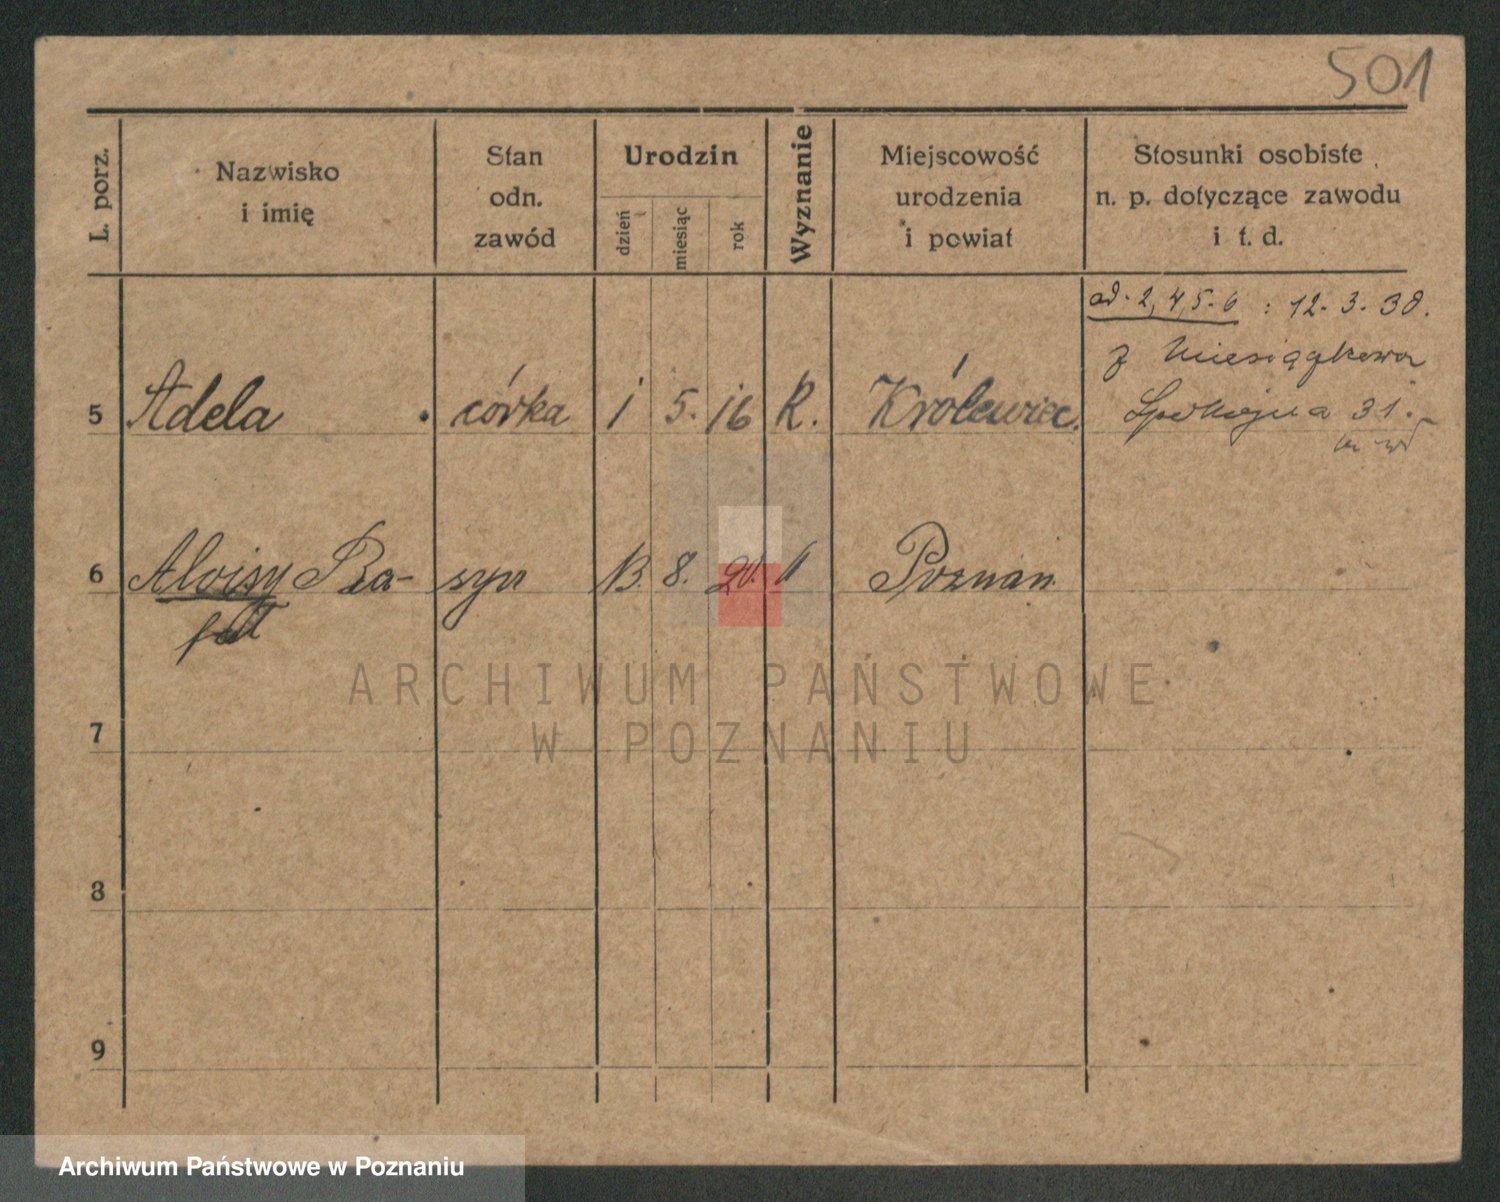 501
L. porz.
Nazwisko
i imię
Stan
odn.
zawód
Urodzin
dzień
miesiąc
rok
Wyznanie
Miejscowość
urodzenia
i powiat
Stosunki osobiste
n. p. dotyczące zawodu
i t. d.
od. 2, 4, 5. 6 : 12. 3. 38.
z
31.
5 Adela córka 1 5. 16 R. Królewiec.
6 Aloisy syn 13. 8. 20. " Poznań.
ARCHIWUM PAŃSTWOWE
W POZNANIU
7
8
9
Archiwum Państwowe w Poznaniu